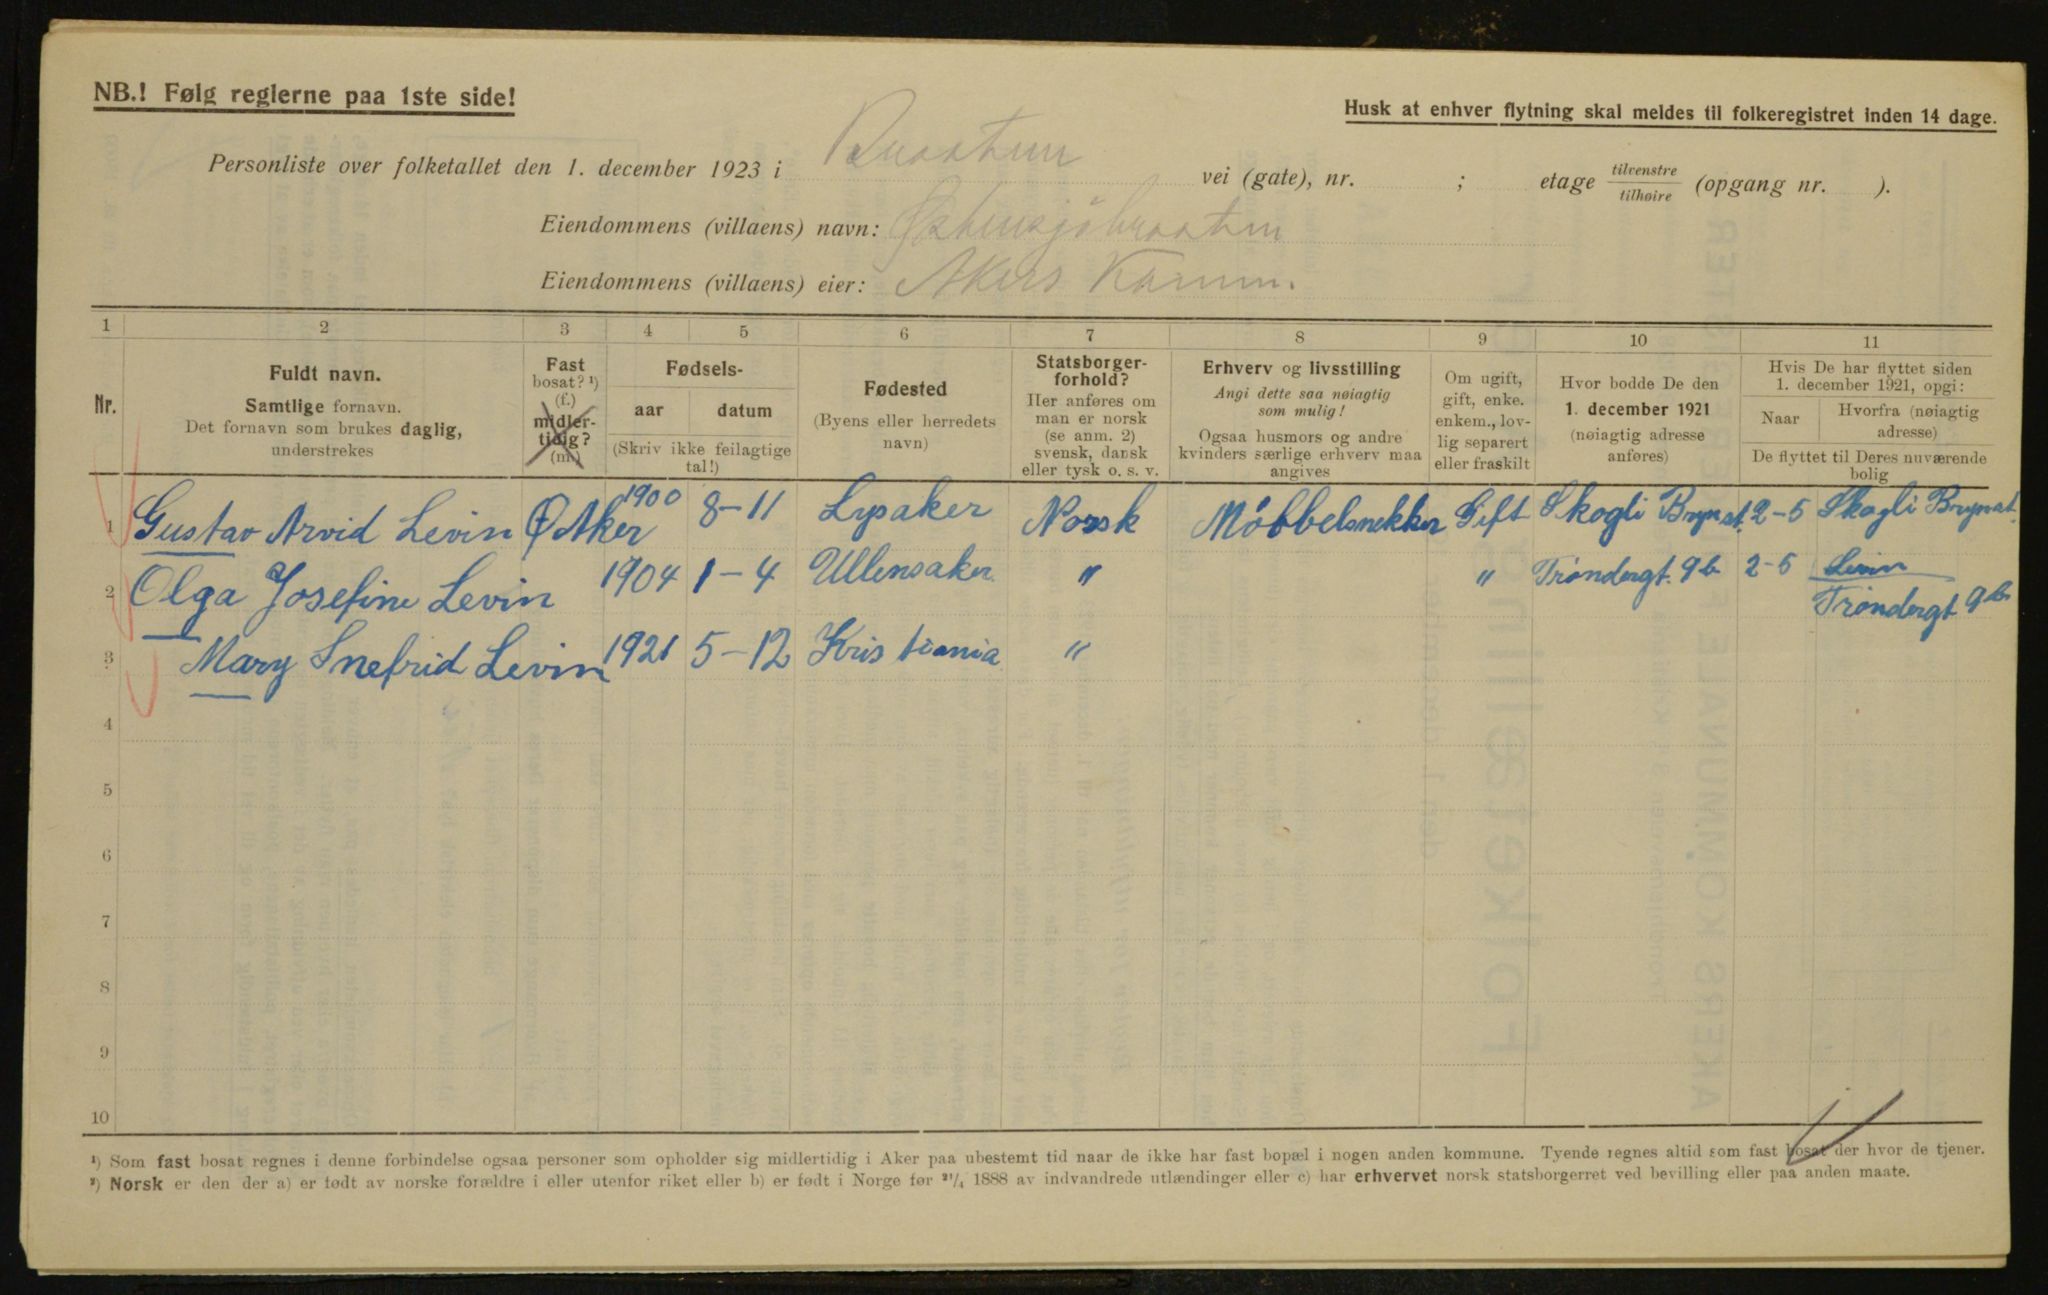 NB.! Følg reglerne paa 1ste side!
Husk at enhver flytning skal meldes til folkeregistret inden 14 dage.
Personliste over folketallet den 1. december 1923 i Braaten vei (gate), nr. ; etage tilvenstre tilhøire (opgang nr. ).
Eiendommens (villaens) navn: Østensjøbraaten
Eiendommens (villaens) eier: Akers Komm.
1 2 3 4 5 6 7 8 9 10 11
Nr.
Fuldt navn.
Samtlige fornavn.
Det fornavn som brukes daglig,
understrekes
Fast
bosat? ¹)
(f.)
midler-
tidig?
(m.)
Fødsels-
aar datum
(Skriv ikke feilagtige
tal!)
Fødested
(Byens eller herredets
navn)
Statsborger-
forhold?
Her anføres om
man er norsk
(se anm. 2)
svensk, dansk
eller tysk o. s. v.
Erhverv og livsstilling
Angi dette saa nøiagtig
som mulig!
Ogsaa husmors og andre
kvinders særlige erhverv maa
angives
Om ugift,
gift, enke.
enkem., lov-
lig separert
eller fraskilt
Hvor bodde De den
1. december 1921
(nøiagtig adresse
anføres)
Hvis De har flyttet siden
1. december 1921, opgi:
Naar
Hvorfra (nøiagtig
adresse)
De flyttet til Deres nuværende
bolig
1 Gustav Arvid Levin Ø Aker 1900 8-11 Lysaker Norsk Möbbelsnekker Gift Skogli Brynst. 2-5 Skogli Brynst.
2 Olga Josefine Levin 1904 1-4 Ullensaker " " Trøndergt. 9b 2-5 Levin
Trøndergt 9b
3 Mary Snefrid Levin 1921 5-12 Kristiania "
4
5
6
7
8
9
10
¹) Som fast bosat regnes i denne forbindelse ogsaa personer som opholder sig midlertidig i Aker paa ubestemt tid naar de ikke har fast bopæl i nogen anden kommune. Tyende regnes altid som fast bosat der hvor de tjener.
²) Norsk er den der a) er født av norske forældre i eller utenfor riket eller b) er født i Norge før ²¹/₄ 1888 av indvandrede utlændinger eller c) har erhvervet norsk statsborgerret ved bevilling eller paa anden maate.